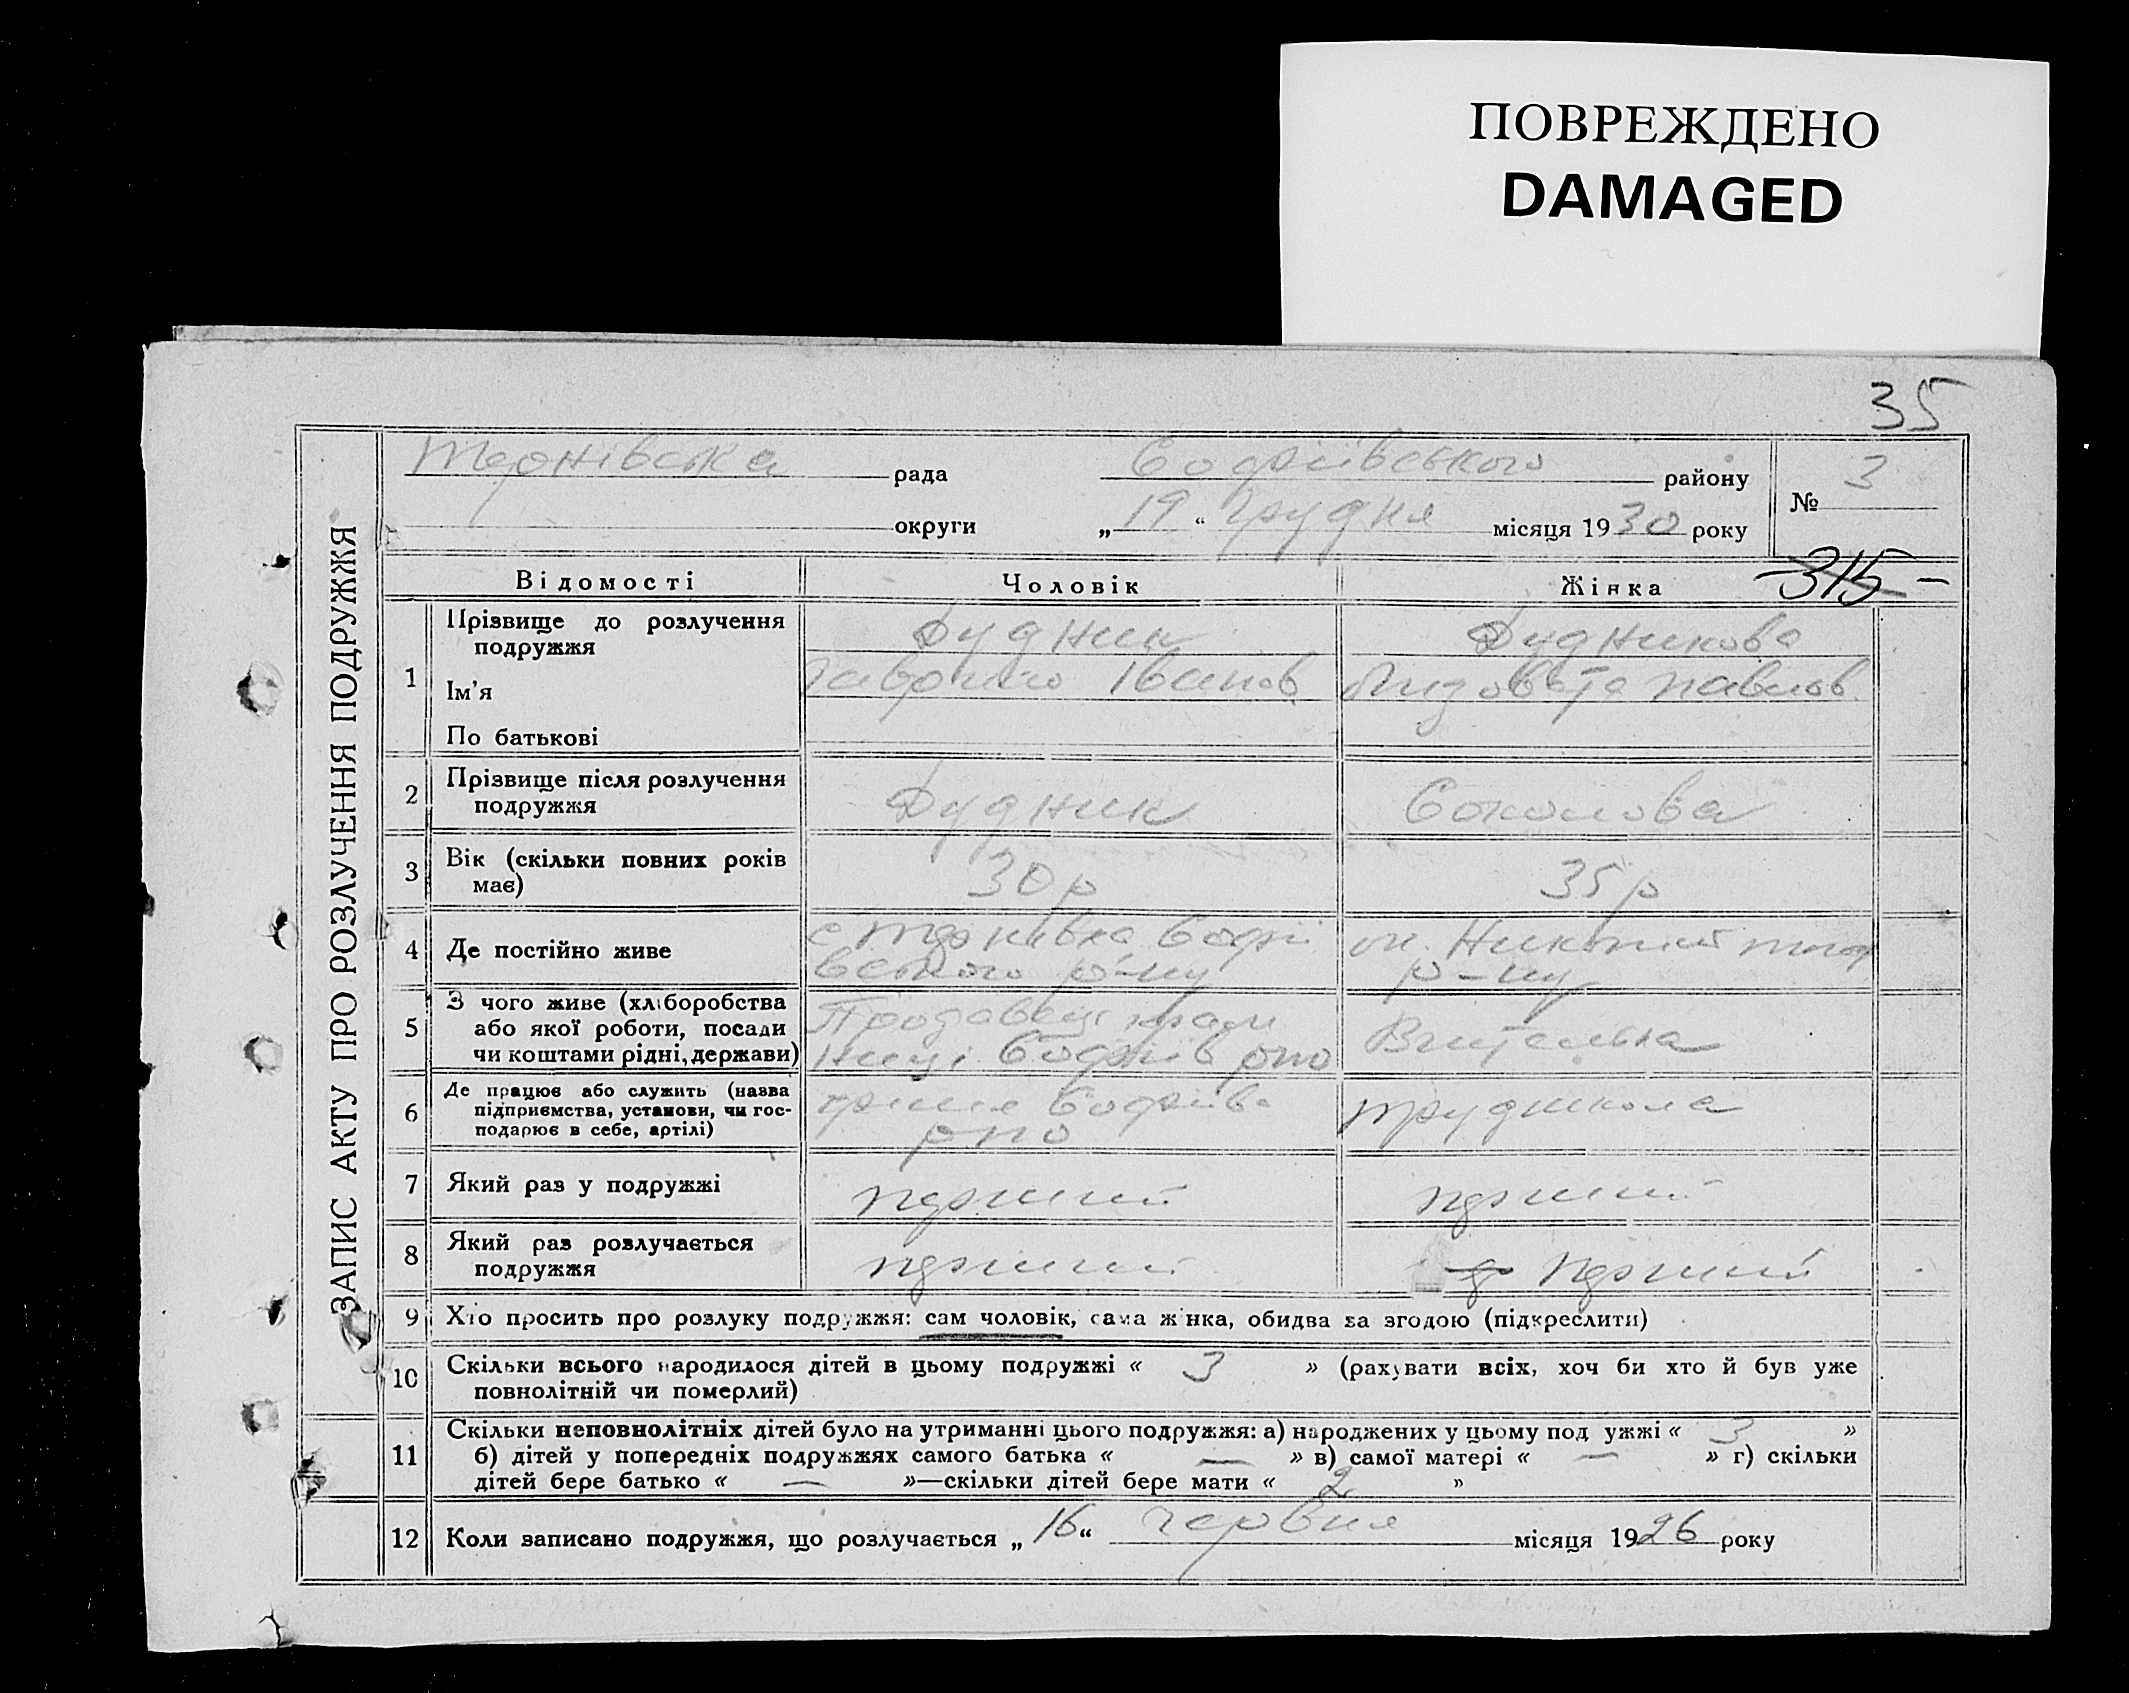 ПОВРЕЖДЕНО
DAMAGED
35
ЗАПИС АКТУ ПРО РОЗЛУЧЕННЯ ПОДРУЖЖЯ
Тернівська рада Софіївського району
округи „ 19 “ грудня місяця 1930 року
№ 3
Відомості Чоловік Жінка 315
1 Прізвище до розлучення подружжя Дудник Дудникова
Ім'я Гаврило Іванов Лизовета Павлов.
По батькові
2 Прізвище після розлучення
подружжя Дудник Соколова
3 Вік (скільки повних років
має) 30 р 35 р
4 Де постійно живе с Тернівка Софії
вського р-ну
р-ну
5 З чого живе (хліборобства
або якої роботи, посади
чи коштами рідні, держави)
Продавець
Софіїв рпо
Вчителька
6 Де працює або служить (назва
підприємства, установи, чи гос-
подарює в себе, артілі)
Софіївс
рпо
трудшкола
7 Який раз у подружжі перший перший
8 Який раз розлучається
подружжя перший перший
9 Хто просить про розлуку подружжя: сам чоловік, сама жінка, обидва за згодою (підкреслити)
10 Скільки всього народилося дітей в цьому подружжі « 3 » (рахувати всіх, хоч би хто й був уже
повнолітній чи померлий)
11 Скільки неповнолітніх дітей було на утриманні цього подружжя: а) народжених у цьому подружжі « 3 »
б) дітей у попередніх подружжях самого батька « — » в) самої матері « — » г) скільки
дітей бере батько « — »—скільки дітей бере мати « 2 »
12 Коли записано подружжя, що розлучається „ 16 “ червня місяця 1926 року